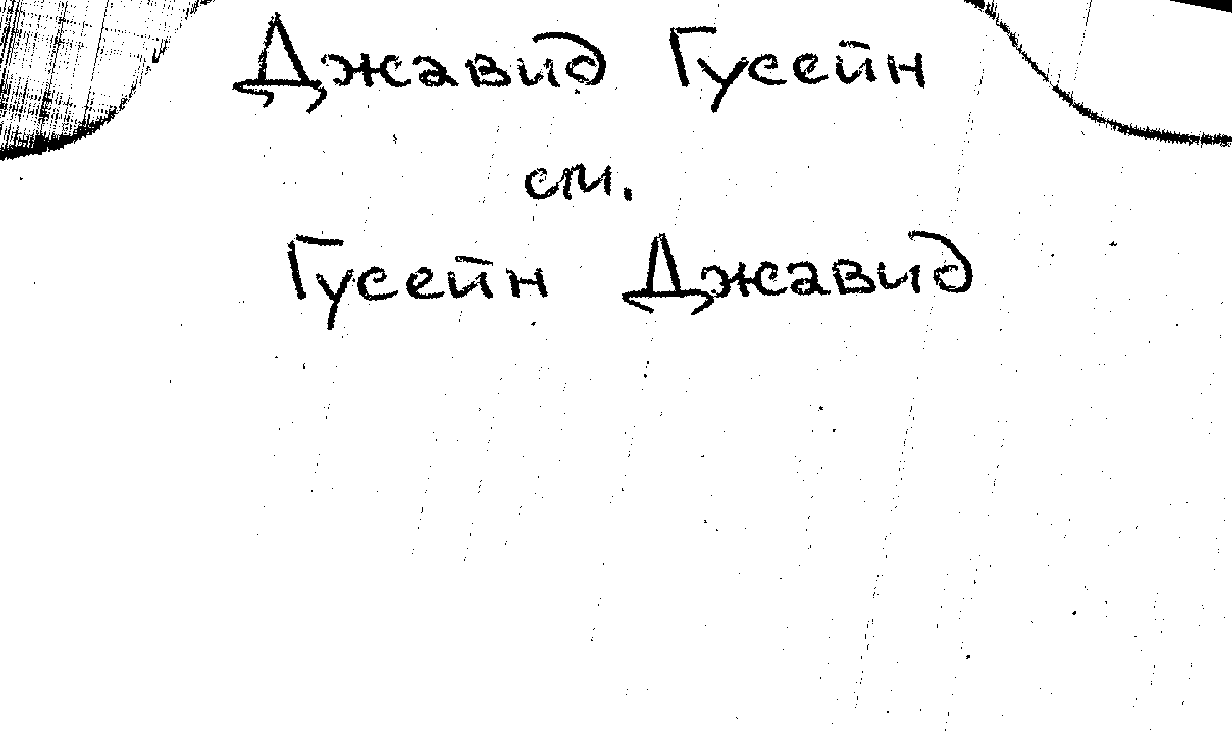 Джавид Гусейн
см.
Гусейн Джавид